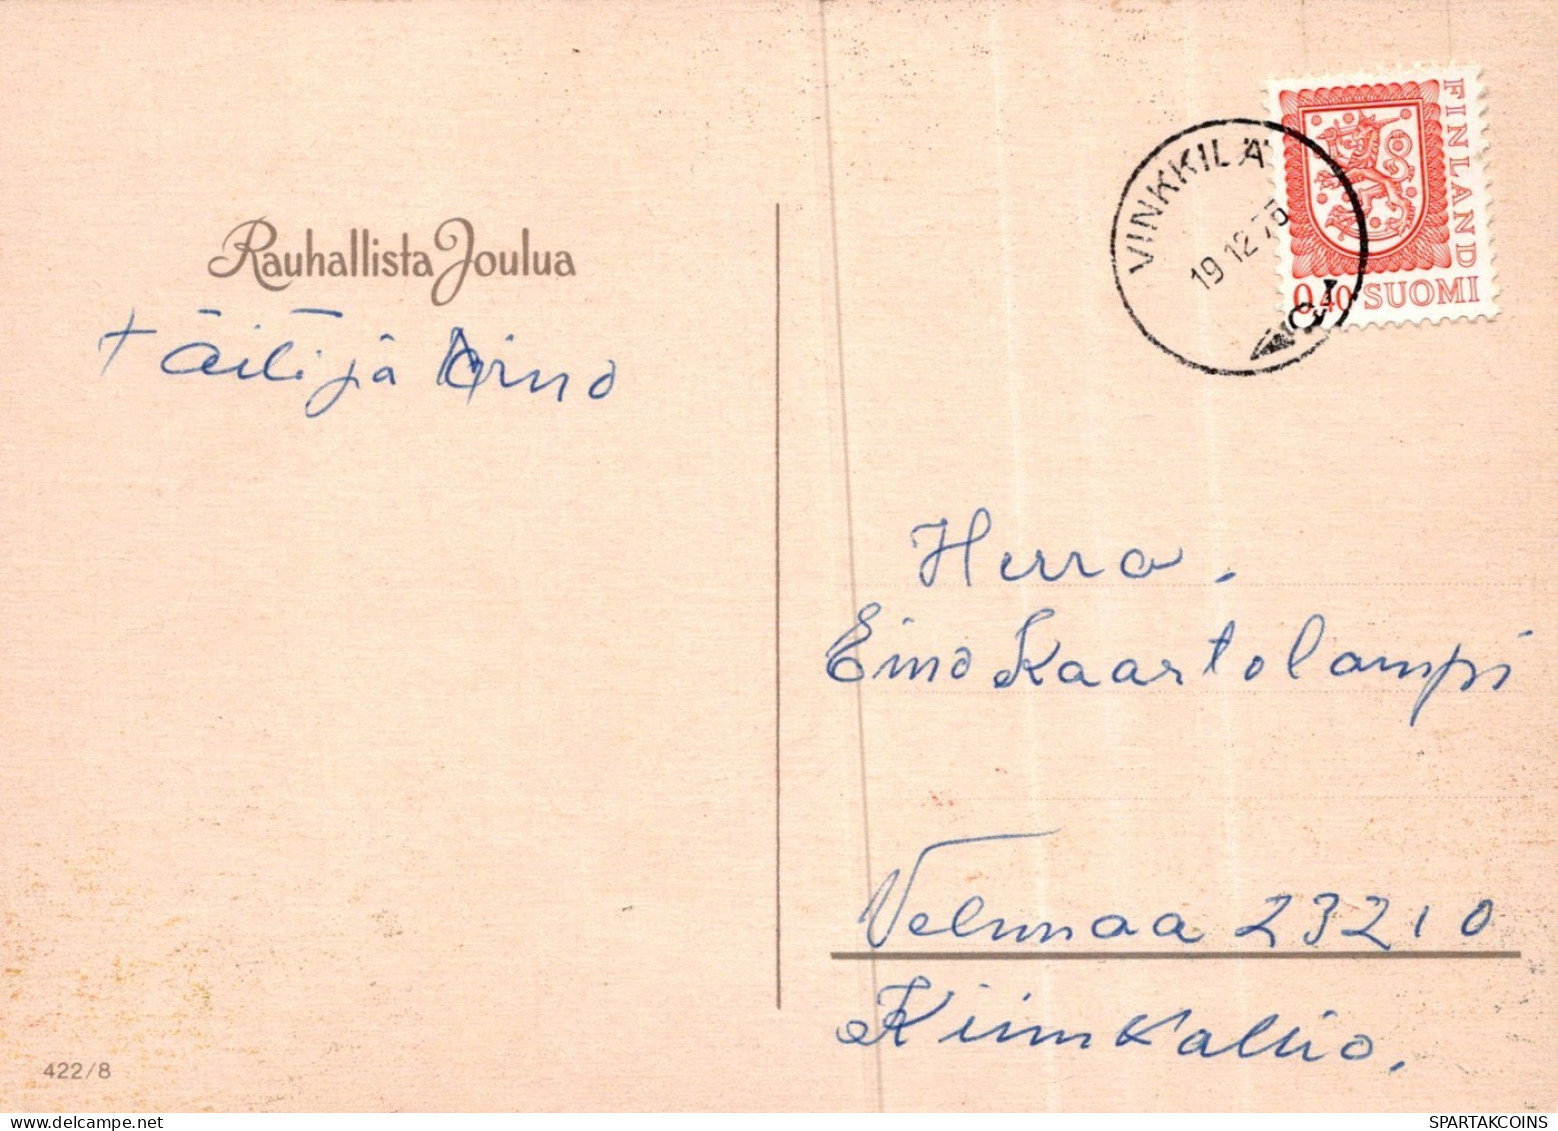 Rauhallista Joulua
täiti ja Aino
VINKKILÄ
19 12 78
FINLAND
0,40 SUOMI
Herra.
Eino Kaartolampi
Velunmaa 23210
Kiimkallio.
422/8
SPARTAKCOINS